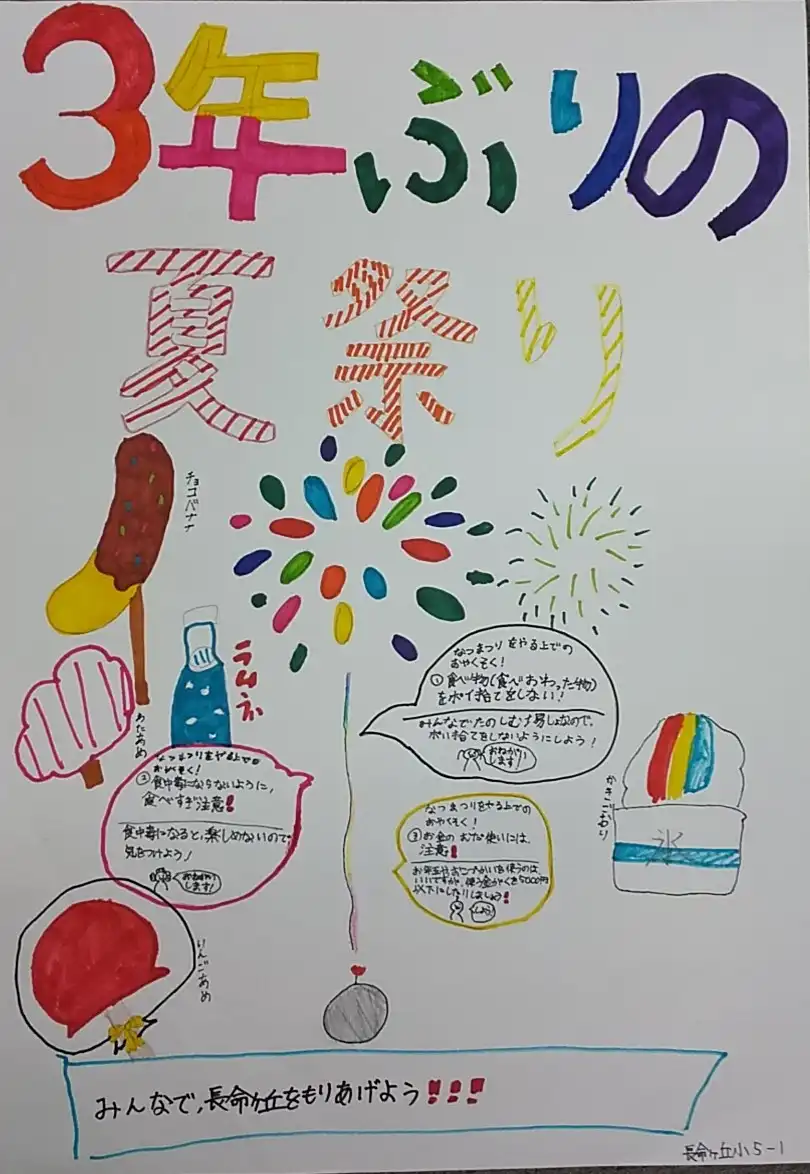 3年ぶりの
夏祭り
チョコバナナ
ラムネ
わたあめ
なつまつりをやる上での
おやくそく!
①食べ物(食べおわった物)
をポイ捨てをしない!
みんなでたのしむ場しょなので、
ポイ捨てをしないようにしよう!
おねがい
します!
なつまつりをやる上での
おやくそく!
②食中毒にならないように、
食べすぎ注意!
食中毒になると、楽しめないので、
気をつけよう!
おねがい
します!
かきごおり
氷
なつまつりをやる上での
おやくそく!
③お金のむだ使いには、
注意!
いいですが、使う金がくを5000円
以下にしたりしましょう!
りんごあめ
みんなで、長命ヶ丘をもりあげよう!!!
長命ヶ丘小5-1